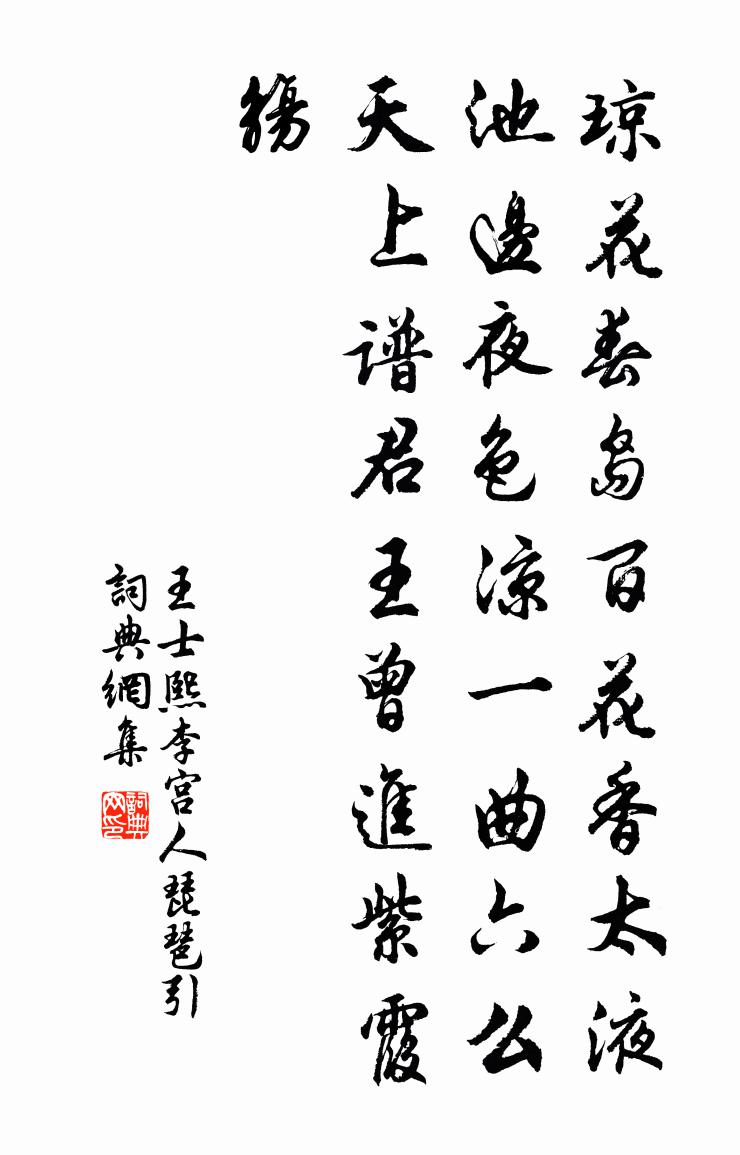 琼花春岛百花香太液
池邊夜色凉一曲六么
天上谱君王曾進紫霞
觴
王士熙李宫人琵琶引
詞典網集
詞典
网印